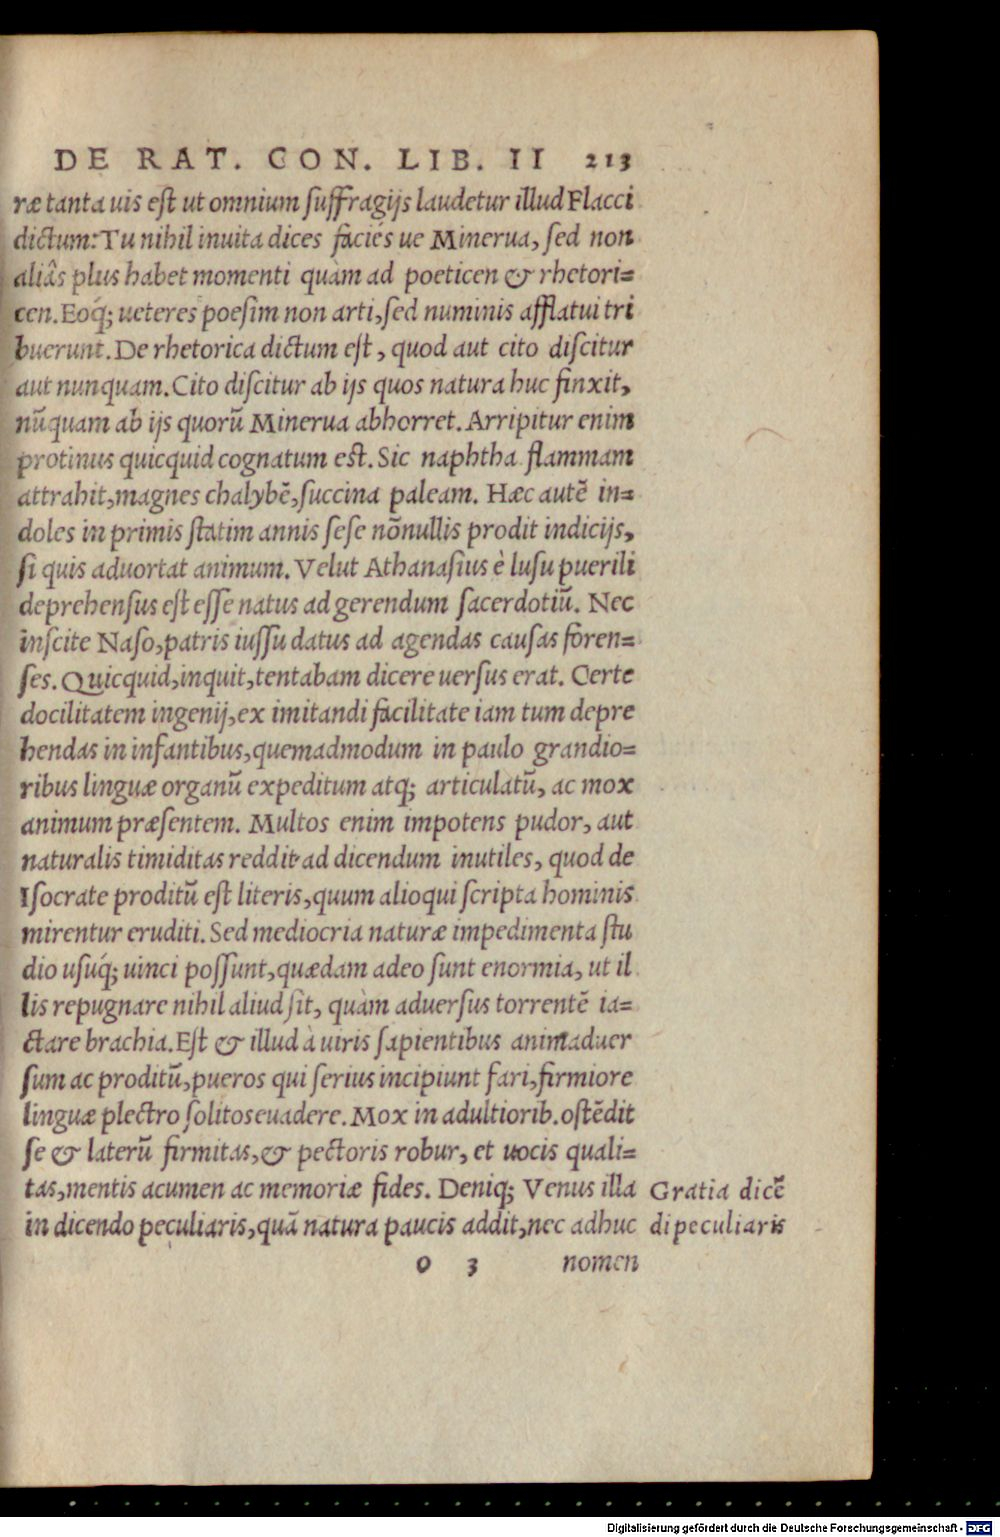 DE RAT. CON. LIB. II 213
ræ tanta uis est ut omnium suffragijs laudetur illud Flacci
dictum: Tu nihil inuita dices faciés ue Minerua, sed non
aliâs plus habet momenti quàm ad poeticen & rhetori=
cen. Eoq́; ueteres poesim non arti, sed numinis afflatui tri
buerunt. De rhetorica dictum est, quod aut cito discitur
aut nunquam. Cito discitur ab ijs quos natura huc finxit,
nũquam ab ijs quorũ Minerua abhorret. Arripitur enim
protinus quicquid cognatum est. Sic naphtha flammam
attrahit, magnes chalybẽ, succina paleam. Hæc autẽ in=
doles in primis statim annis sese nõnullis prodit indicijs,
si quis aduortat animum. Velut Athanasius è lusu puerili
deprehensus est esse natus ad gerendum sacerdotiũ. Nec
inscite Naso, patris iussu datus ad agendas causas foren=
ses. Quicquid, inquit, tentabam dicere uersus erat. Certe
docilitatem ingenij, ex imitandi facilitate iam tum depre
hendas in infantibus, quemadmodum in paulo grandio=
ribus linguæ organũ expeditum atq; articulatũ, ac mox
animum præsentem. Multos enim impotens pudor, aut
naturalis timiditas reddit ad dicendum inutiles, quod de
Isocrate proditũ est literis, quum alioqui scripta hominis
mirentur eruditi. Sed mediocria naturæ impedimenta stu
dio usuq́; uinci possunt, quædam adeo sunt enormia, ut il
lis repugnare nihil aliud sit, quàm aduersus torrentẽ ia=
ctare brachia. Est & illud à uiris sapientibus animaduer
sum ac proditũ, pueros qui serius incipiunt fari, firmiore
linguæ plectro solitos euadere. Mox in adultiorib. ostẽdit
se & laterũ firmitas, & pectoris robur, et uocis quali=
tas, mentis acumen ac memoriæ fides. Deniq; Venus illa
in dicendo peculiaris, quã natura paucis addit, nec adhuc
Gratia dicẽ
di peculiaris
o 3 nomen
Digitalisierung gefördert durch die Deutsche Forschungsgemeinschaft - DFG